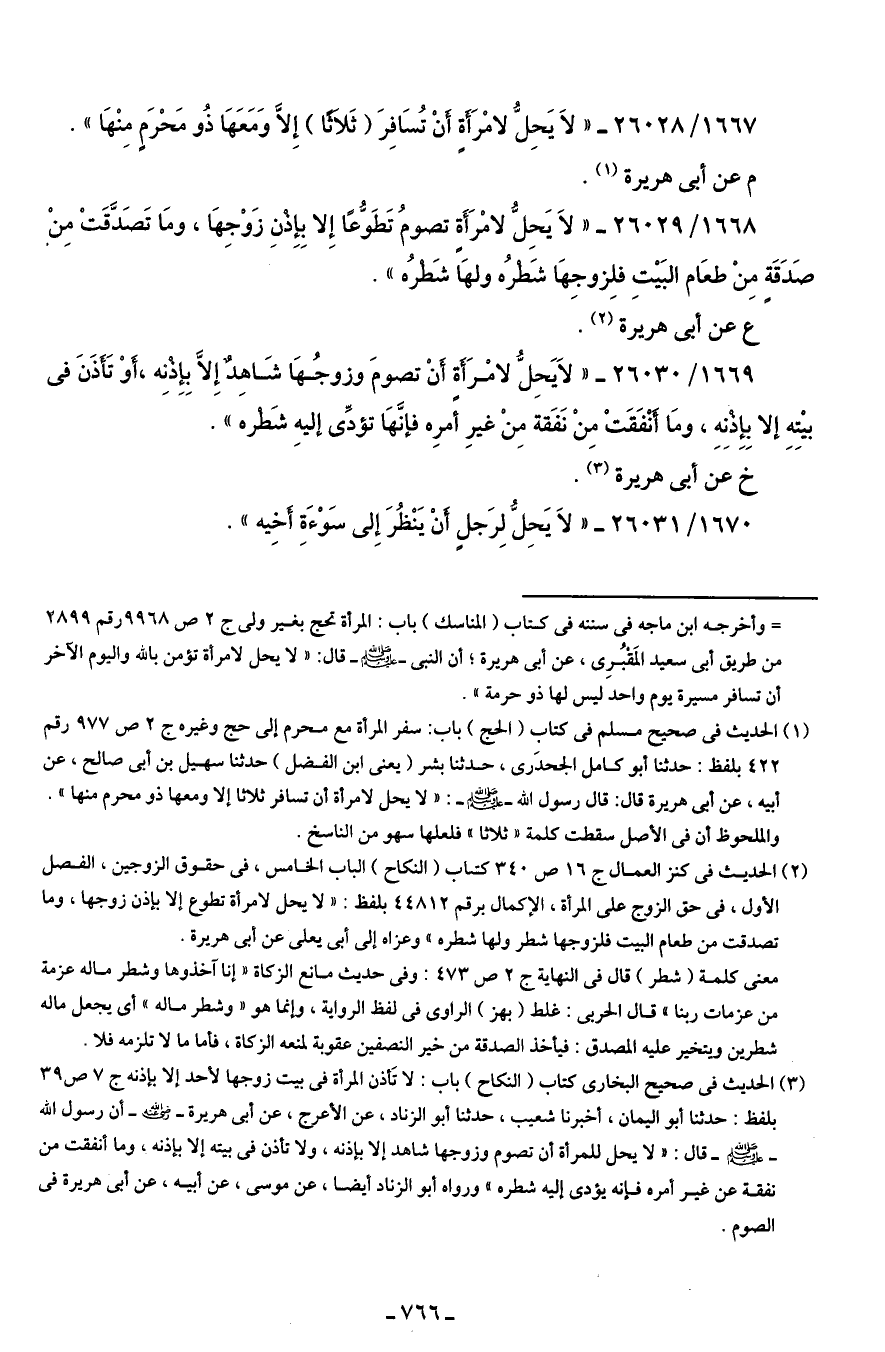 ١٦٦٧/ ٢٦٠٢٨ ـ « لاَ يَحِلُّ لامْرَأَةٍ أَنْ تُسَافِرَ ( ثَلاَثًا ) إِلاَّ وَمَعَهَا ذُو مَحْرَمٍ مِنْهَا » .
م عن أبى هريرة (١) .
١٦٦٨/ ٢٦٠٢٩ ـ « لاَ يَحِلُّ لامْرَأَةٍ تصومُ تَطَوُّعًا إِلا بِإِذْنِ زَوْجِهَا ، وما تَصَدَّقَتْ مِنْ
صَدَقَةٍ مِنْ طعَام البَيْتِ فلِزوجِهَا شَطْرُه ولهَا شَطْرُه » .
ع عن أبى هريرة (٢) .
١٦٦٩/ ٢٦٠٣٠ ـ « لاَيَحِلُّ لامْرَأَةٍ أَنْ تصومَ وزوجُهَا شَاهِدٌ إِلاَّ بِإِذْنِه ،أَوْ تَأْذَنَ فى
بيْتِهِ إلا بِإِذْنِه ، ومَا أَنْفَقَتْ مِنْ نَفَقة مِنْ غيرِ أمرِه فإنَّهَا تؤدِّى إليهِ شَطْره » .
خ عن أبى هريرة (٣) .
١٦٧٠/ ٢٦٠٣١ ـ « لاَ يَحِلُّ لِرَجلٍ أَنْ يَنْظُرَ إِلى سَوْءَةِ أَخِيه » .
= وأخرجه ابن ماجه فى سننه فى كتاب ( المناسك ) باب : المرأة تحج بغير ولى ج ٢ ص ٩٩٦٨رقم ٢٨٩٩
من طريق أبى سعيد المَقْبُرى ، عن أبى هريرة ؛ أن النبى ـ ﷺ ـ قال: « لا يحل لامرأة تؤمن بالله واليوم الآخر
أن تسافر مسيرة يوم واحد ليس لها ذو حرمة » .
(١) الحديث فى صحيح مسلم فى كتاب ( الحج ) باب: سفر المرأة مع محرم إلى حج وغيره ج ٢ ص ٩٧٧ رقم
٤٢٢ بلفظ : حدثنا أبو كامل الجحدَرى ، حدثنا بشر ( يعنى ابن الفضل ) حدثنا سهيل بن أبى صالح ، عن
أبيه ، عن أبى هريرة قال: قال رسول الله ـ ﷺ ـ : « لا يحل لامرأة أن تسافر ثلاثا إلا ومعها ذو محرم منها » .
والملحوظ أن فى الأصل سقطت كلمة « ثلاثا » فلعلها سهو من الناسخ .
(٢) الحديث فى كنز العمال ج ١٦ ص ٣٤٠ كتاب ( النكاح ) الباب الخامس ، فى حقوق الزوجين ، الفصل
الأول ، فى حق الزوج على المرأة ، الإكمال برقم ٤٤٨١٢ بلفظ : « لا يحل لامرأة تطوع إلا بإذن زوجها ، وما
تصدقت من طعام البيت فلزوجها شطر ولها شطره » وعزاه إلى أبى يعلى عن أبى هريرة .
معنى كلمة ( شطر ) قال فى النهاية ج ٢ ص ٤٧٣ : وفى حديث مانع الزكاة « إنا آخذوها وشطر ماله عزمة
من عزمات ربنا » قال الحربى : غلط ( بهز ) الراوى فى لفظ الرواية ، وإنما هو « وشطر ماله » أى يجعل ماله
شطرين ويتخير عليه المصدق : فيأخذ الصدقة من خير النصفين عقوبة لمنعه الزكاة ، فأما ما لا تلزمه فلا .
(٣) الحديث فى صحيح البخارى كتاب ( النكاح ) باب : لا تأذن المرأة فى بيت زوجها لأحد إلا بإذنه ج ٧ ص٣٩
بلفظ : حدثنا أبو اليمان ، أخبرنا شعيب ، حدثنا أبو الزناد ، عن الأعرج ، عن أبى هريرة ـ رضي الله عنه ـ أن رسول الله
ـ ﷺ ـ قال : « لا يحل للمرأة أن تصوم وزوجها شاهد إلا بإذنه ، ولا تأذن فى بيته إلا بإذنه ، وما أنفقت من
نفقة عن غير أمره فإنه يؤدى إليه شطره » ورواه أبو الزناد أيضا ، عن موسى ، عن أبيه ، عن أبى هريرة فى
الصوم .
ـ ٧٦٦ ـ